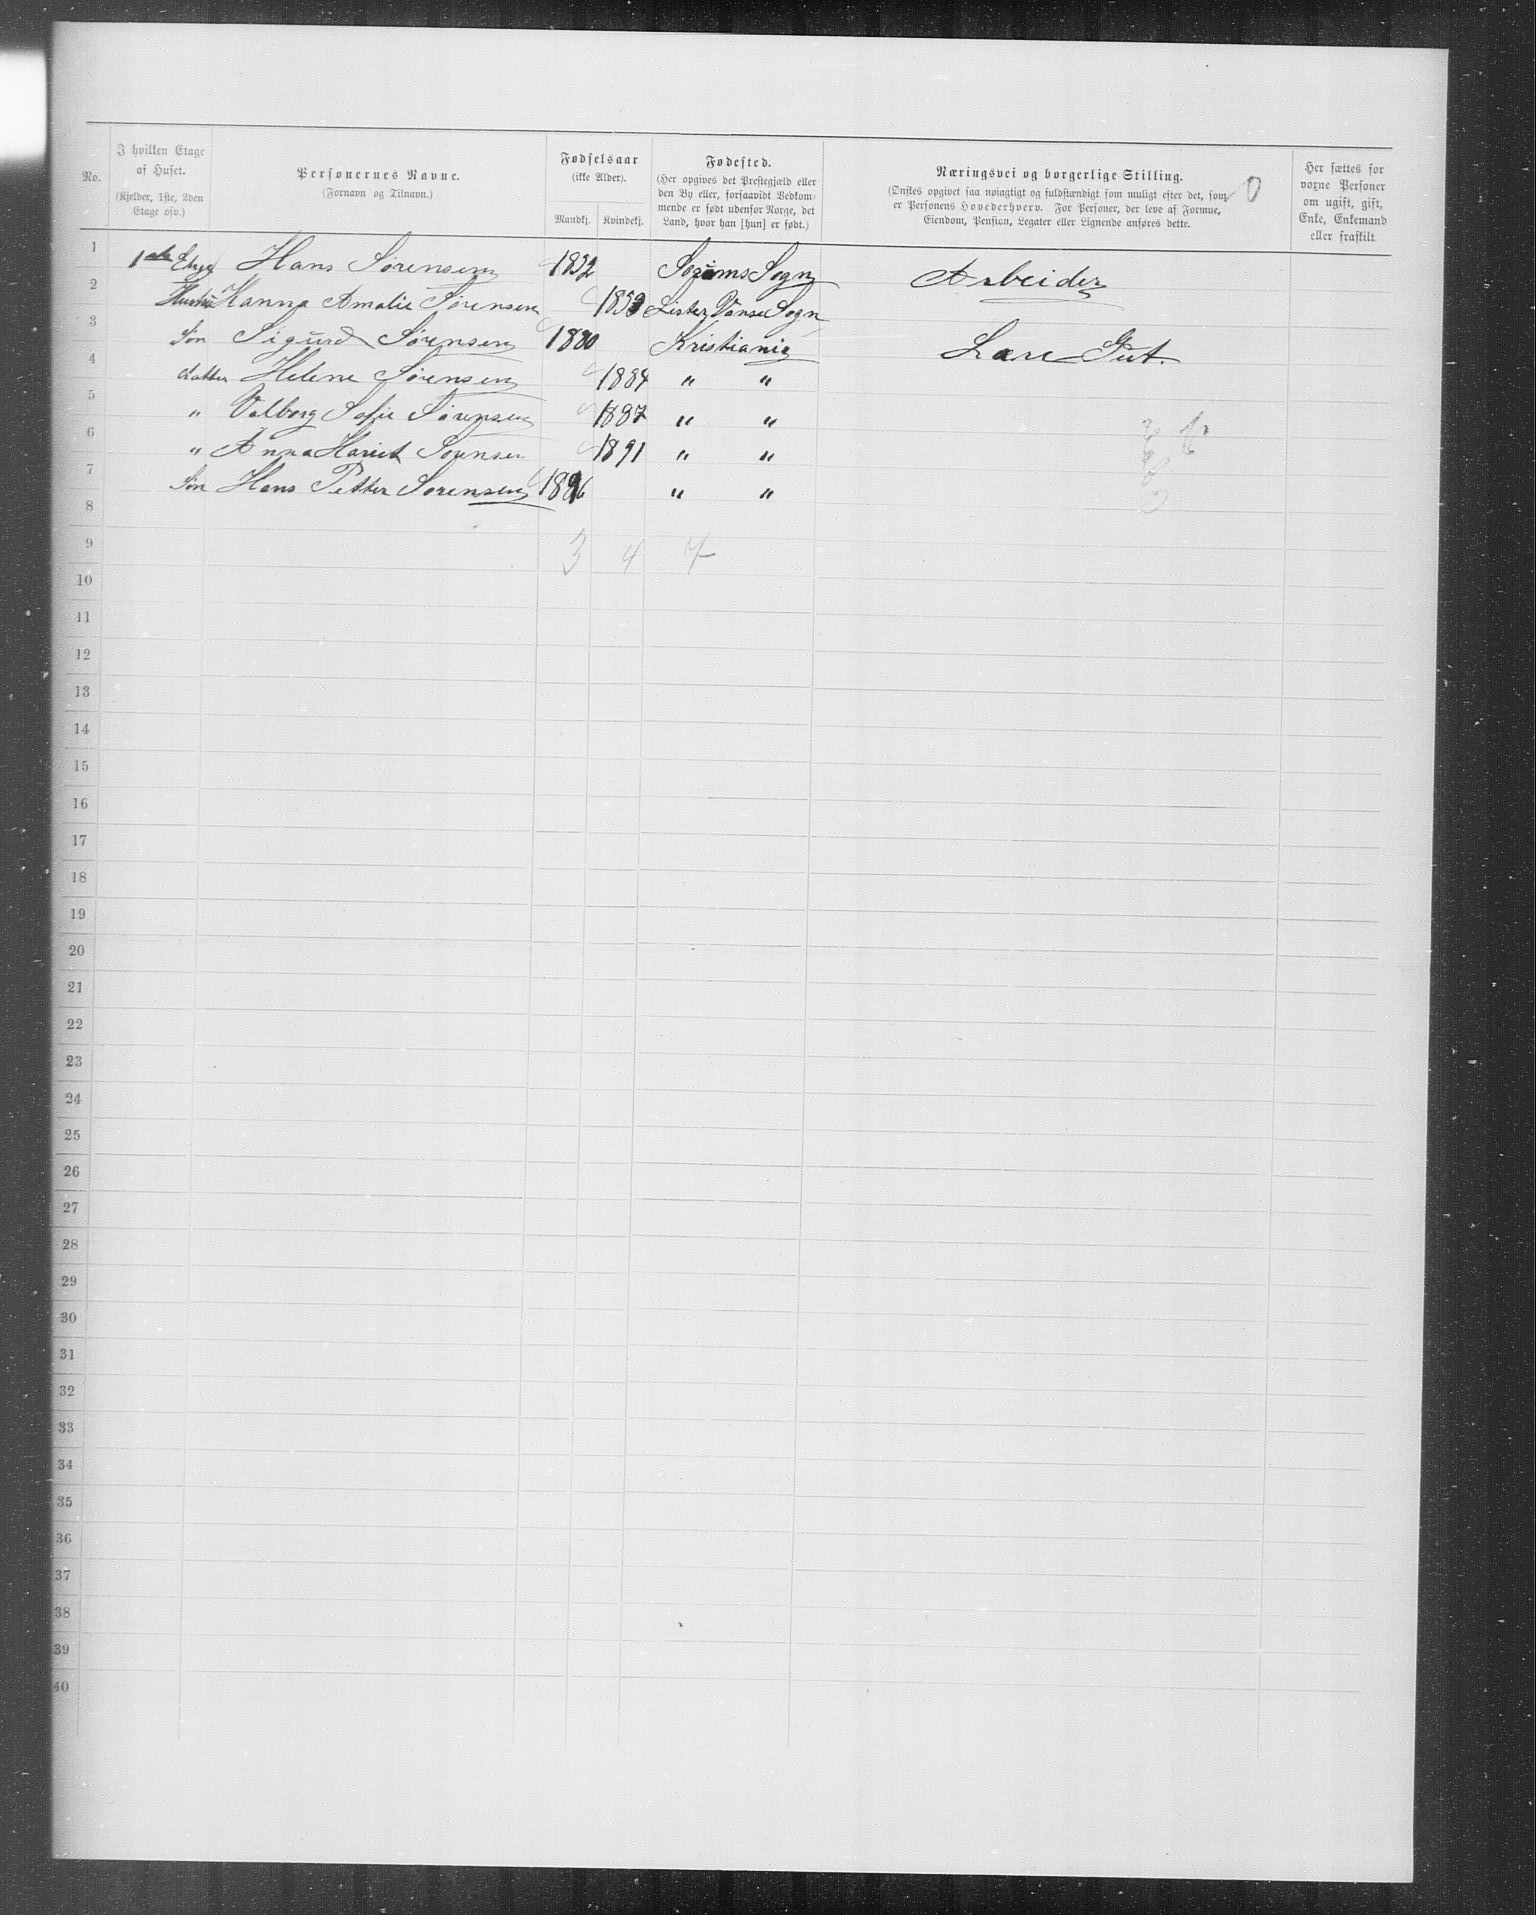 No.
I hvilken Etage
af Huset.
(Kjelder, 1ste, 2den
Etage osv.)
Personernes Navne.
(Fornavn og Tilnavn.)
Fødselsaar
(ikke Alder).
Mandkj. Kvindekj.
Fødested.
(Her opgives det Prestegjæld eller
den By eller, forsaavidt Vedkom-
mende er født udenfor Norge, det
Land, hvor han [hun] er født.)
Næringsvei og borgerlige Stilling.
(Ønskes opgivet saa nøiagtigt og fuldstændigt som muligt efter det, som
er Personens Hovederhverv. For Personer, der leve af Formue,
Eiendom, Pension, Legater eller Lignende anføres dette.
0
Her sættes for
voxne Personer
om ugift, gift,
Enke, Enkemand
eller fraskilt
1 1ste Etage Hans Sørensen 1832 Sogn Arbeider
2 Hustru Hanna Amalie Sørensen 1859 Lister Vanse Sogn
3 Søn Sigurd Sørensen 1880 Kristiania Lære Gut.
4 datter Helene Sørensen 1884 " "
5 " Valborg Sofie Sørensen 1887 " "
6 " Anna Hariet Sørensen 1891 " "
7 Søn Hans Petter Sørensen 1896 " "
8
9 3 4 7
10
11
12
13
14
15
16
17
18
19
20
21
22
23
24
25
26
27
28
29
30
31
32
33
34
35
36
37
38
39
40